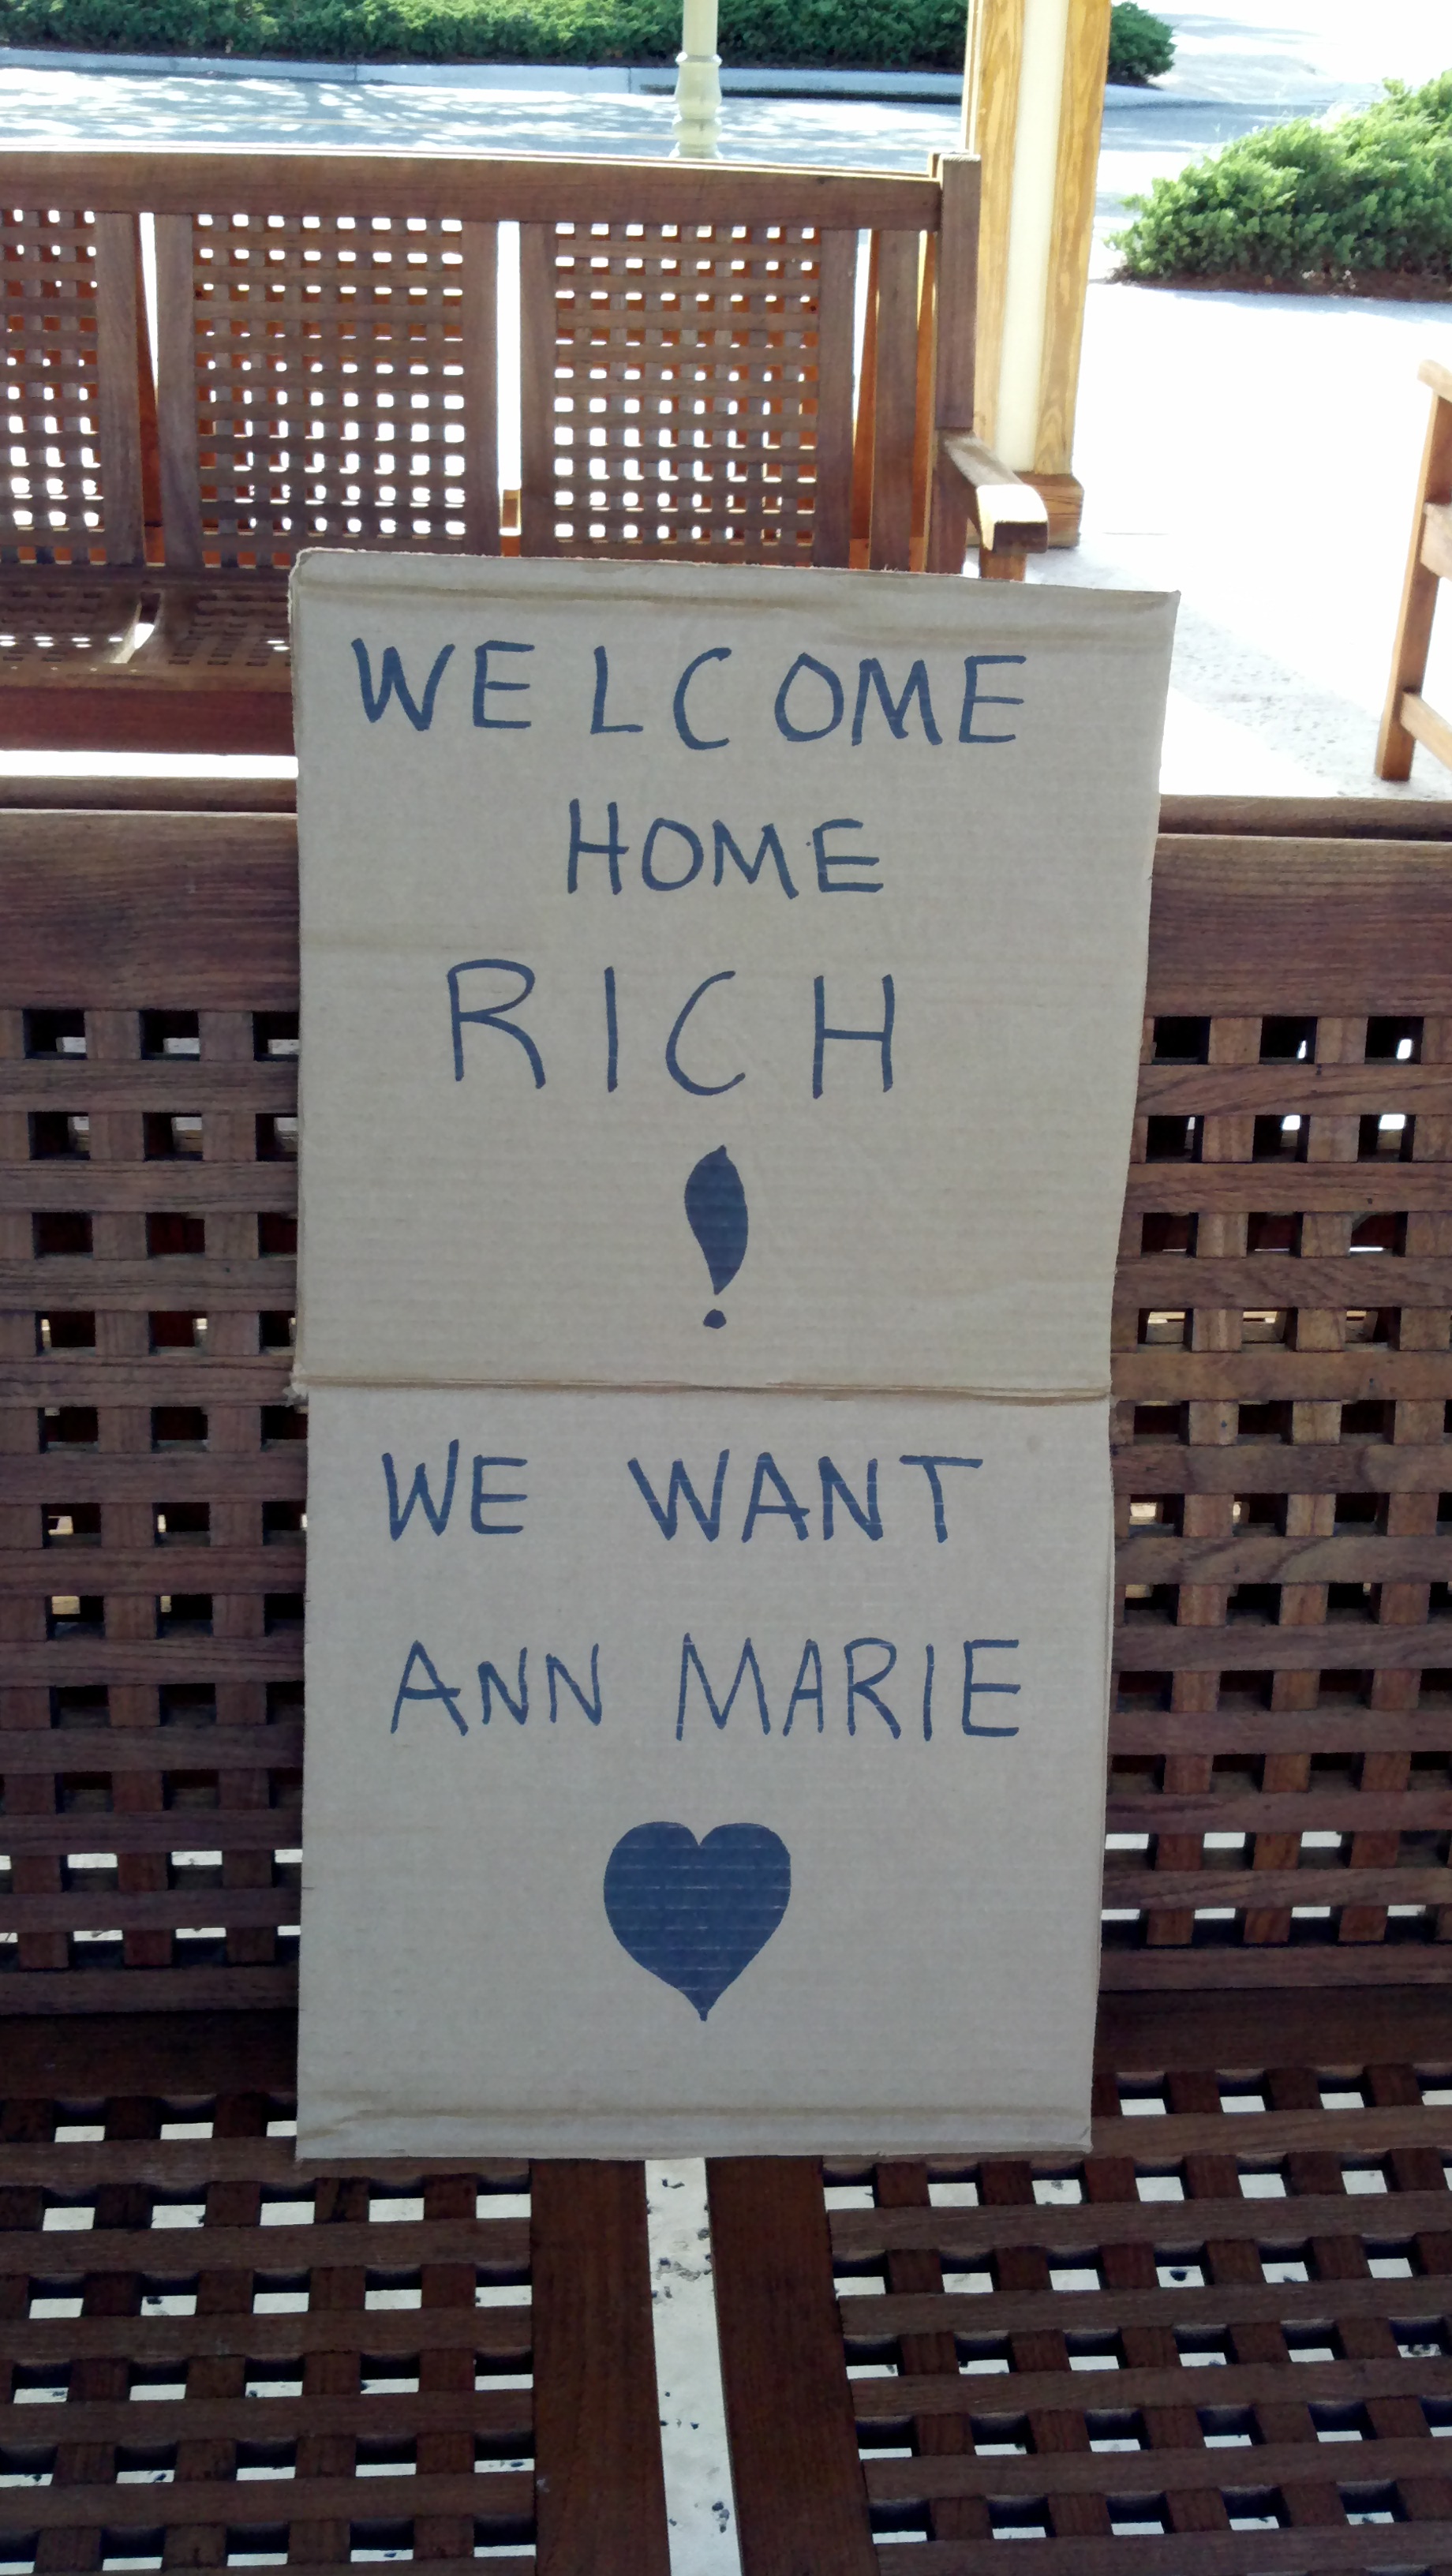 WELCOME
HOME
RICH
!
WE WANT
ANN MARIE